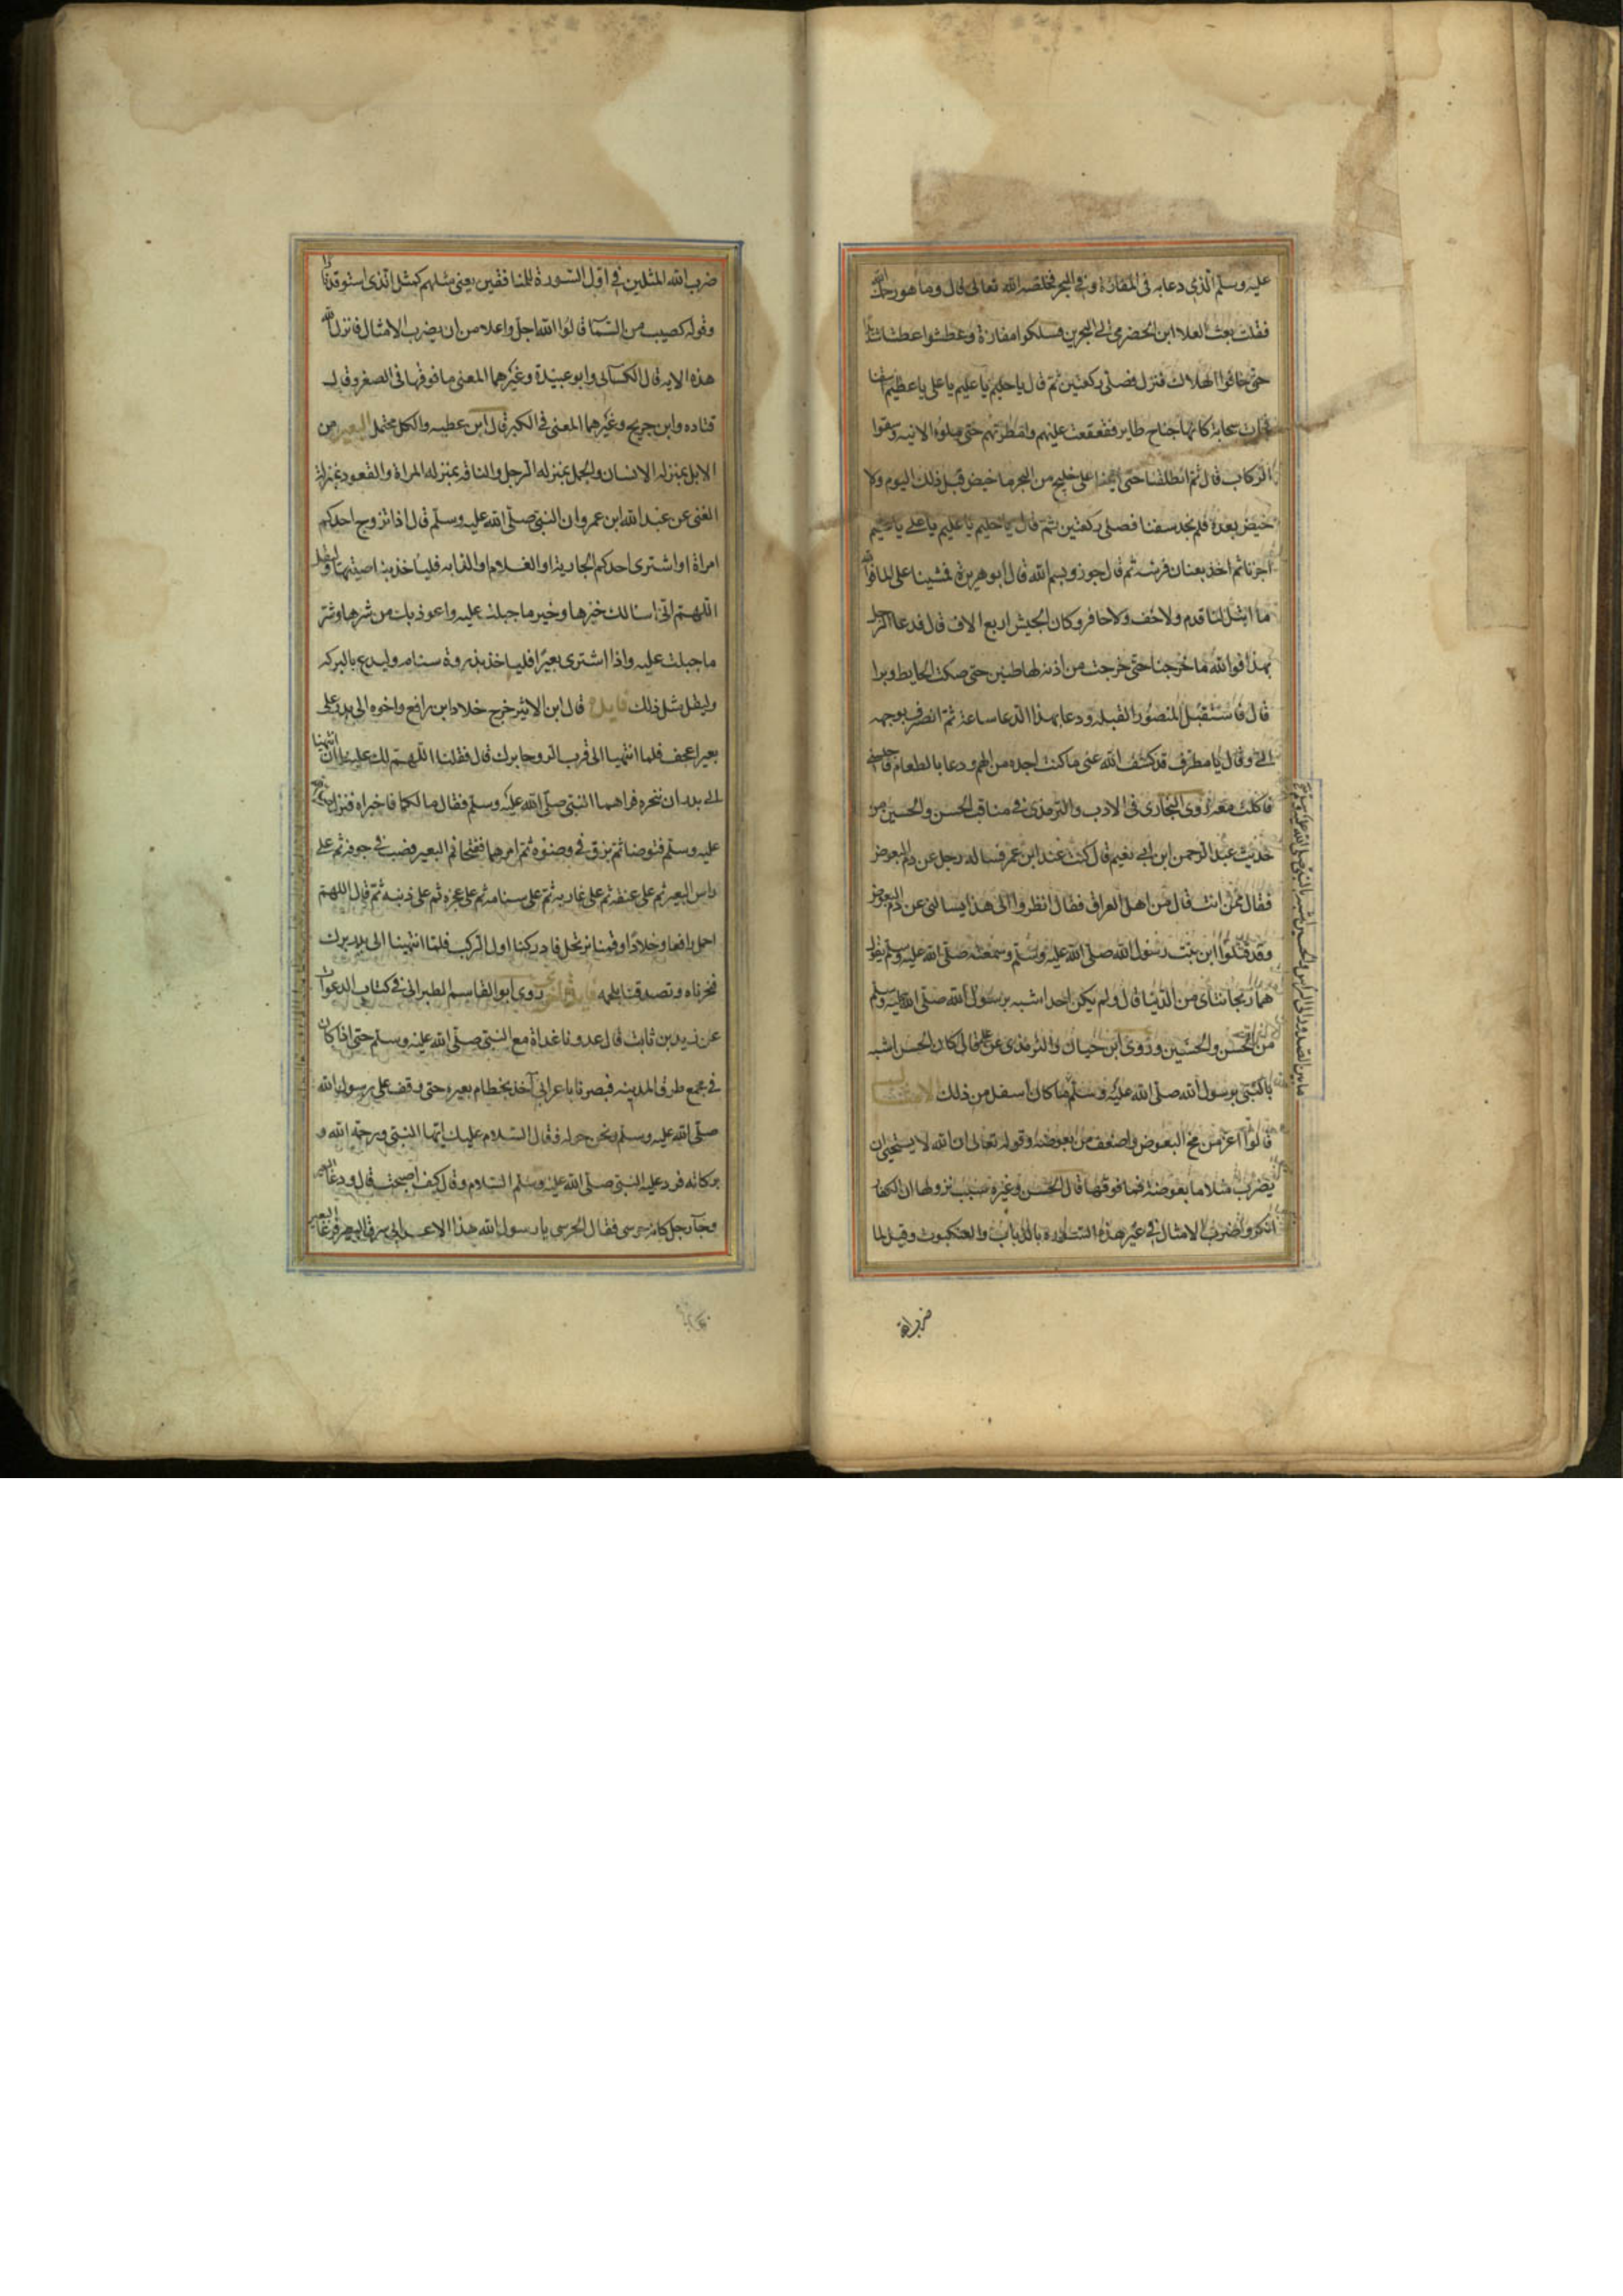 عليه وسلم الذي دعا به في المفازة وفي البحر فخلصه الله تعالى قال وما هو رحمك الله
فقلت بعث العلا ابن الحضرمي الى البحرين فسلكوا مفازة وعطشوا عطشا شديدا
حتى خافوا الهلاك فنزل فصلى ركعتين ثم قال يا حليم يا عليم يا علي يا عظيم اسقنا
فجات سحابة كانها جناح طاير فقعقعت عليهم وامطرتهم حتى ملوا الانية وسقوا
الركاب قال ثم انطلقنا حتى اتينا على خليج من البحر ما خيض قبل ذلك اليوم ولا
خيض بعده فلم نجد سفنا فصلى ركعتين ثم قال يا حليم يا عليم يا علي يا عظيم
اجزنا ثم اخذ بعنان فرسه ثم قال جوزوا بسم الله قال ابو هريرة فمشينا على الما فوالله
ما ابتل لنا قدم ولا خف ولا حافر وكان الجيش اربع الاف قال فدعا الرجل
بهذا فوالله ما خرجنا حتى خرجت من اذنه لها طنين حتى صكت الحايط وبرا
قال فاستقبل المنصور القبلة ودعا بهذا الدعا ساعة ثم انصرف بوجهه
الي وقال يا مطرف قد كشف الله عني ما كنت اجده من الهم ودعا بالطعام فاجلسني
فاكلت معه روى البخاري في الادب والترمذي في مناقب الحسن والحسين من
حديث عبد الرحمن ابن ابي نعيم قال كنت عند ابن عمر فساله رجل عن دم البعوض
فقال ممن انت قال من اهل العراق فقال انظروا الى هذا يسالني عن دم البعوض
وقد قتلوا ابن بنت رسول الله صلى الله عليه وسلم وسمعته صلى الله عليه وسلم يقول
هما ريحانتاي من الدنيا قال ولم يكن احد اشبه برسول الله صلى الله عليه وسلم
من الحسن والحسين وروى ابن حبان والترمذي عن علي قال كان الحسن اشبه
بالنبي برسول الله صلى الله عليه وسلم ما كان اسفل من ذلك الامثال
قالوا اعز من مخ البعوض واضعف من بعوضة وقوله تعالى ان الله لا يستحيي ان
يضرب مثلا ما بعوضة فما فوقها قال الحسن وغيره سبب نزولها ان الكفار
انكروا ضرب الامثال في غير هذه السورة بالذباب والعنكبوت وقيل لما
ما بين الصدور الى الراس والحسين اشبه بالنبي صلى الله عليه وسلم
ضرب الله
ضرب الله المثلين في اول السورة للمنافقين يعني مثلهم كمثل الذي استوقد نارا
وقوله كصيب من السما قالوا الله اجل واعلا من ان يضرب الامثال فانزل الله
هذه الاية قال الكساي وابو عبيدة وغيرهما المعنى ما فوقها في الصغر وقال
قتاده وابن جريج وغيرهما المعنى في الكبر قال ابن عطيه والكل محتمل البعير من
الابل بمنزلة الانسان والجمل بمنزله الرجل والناقه بمنزله المراة والقعود بمنزلة
الفتى عن عبد الله ابن عمرو ان النبي صلى الله عليه وسلم قال اذا تزوج احدكم
امراة او اشترى احدكم الجارية او الغلام او الدابه فلياخذ بناصيتها وليقل
اللهم اني اسالك خيرها وخير ما جبلت عليه واعوذ بك من شرها وشر
ما جبلت عليه واذا اشترى بعيرا فلياخذ بذروة سنامه وليدع بالبركه
وليقل مثل ذلك فايدة قال ابن الاثير خرج خلاد ابن رافع واخوه الى بدر على
بعير اعجف فلما انتهيا الى قرب الروحا برك قال فقلنا اللهم لك علينا ان انتهينا
الى بدر ان ننحره فراهما النبي صلى الله عليه وسلم فقال ما لكما فاخبراه فنزل
عليه وسلم فتوضا ثم بزق في وضوه ثم امرهما ففتحا فم البعير فصب في جوفه ثم على
راس البعير ثم على عنقه ثم على غاربه ثم على سنامه ثم على عجزه ثم على ذنبه ثم قال اللهم
احمل رافعا وخلادا وقمنا نرتحل فادركنا اول الركب فلما انتهينا الى بدر برك
فنحرناه وتصدقنا بلحمه روى ابو القاسم الطبراني في كتاب الدعوات
عن زيد بن ثابت قال غدونا غداة مع النبي صلى الله عليه وسلم حتى اذا كان
في مجمع طرق المدينه فبصرنا باعرابي آخذ بخطام بعيره حتى وقف على رسول الله
صلى الله عليه وسلم ونحن حوله فقال السلام عليك ايها النبي ورحمة الله و
بركاته فرد عليه النبي صلى الله عليه وسلم السلام وقال كيف اصبحت قال ورغا البعير
وجآ رجل كانه حرسي فقال الحرسي يا رسول الله هذا الاعرابي سرق البعير فرغا البعير